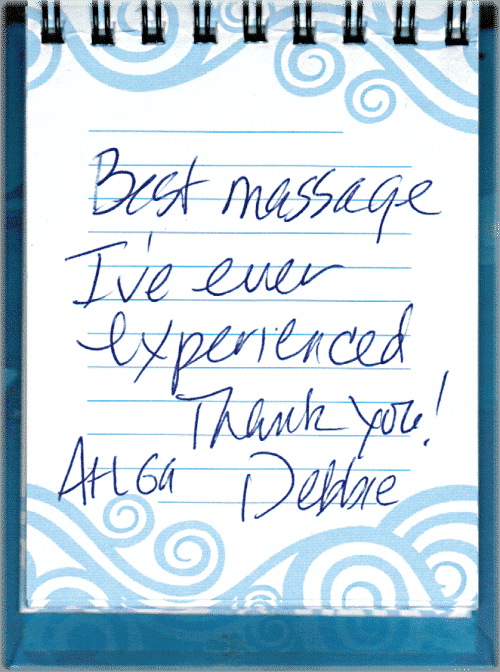 Best massage
I've ever
experienced
Thank you!
Atl Ga Debbie